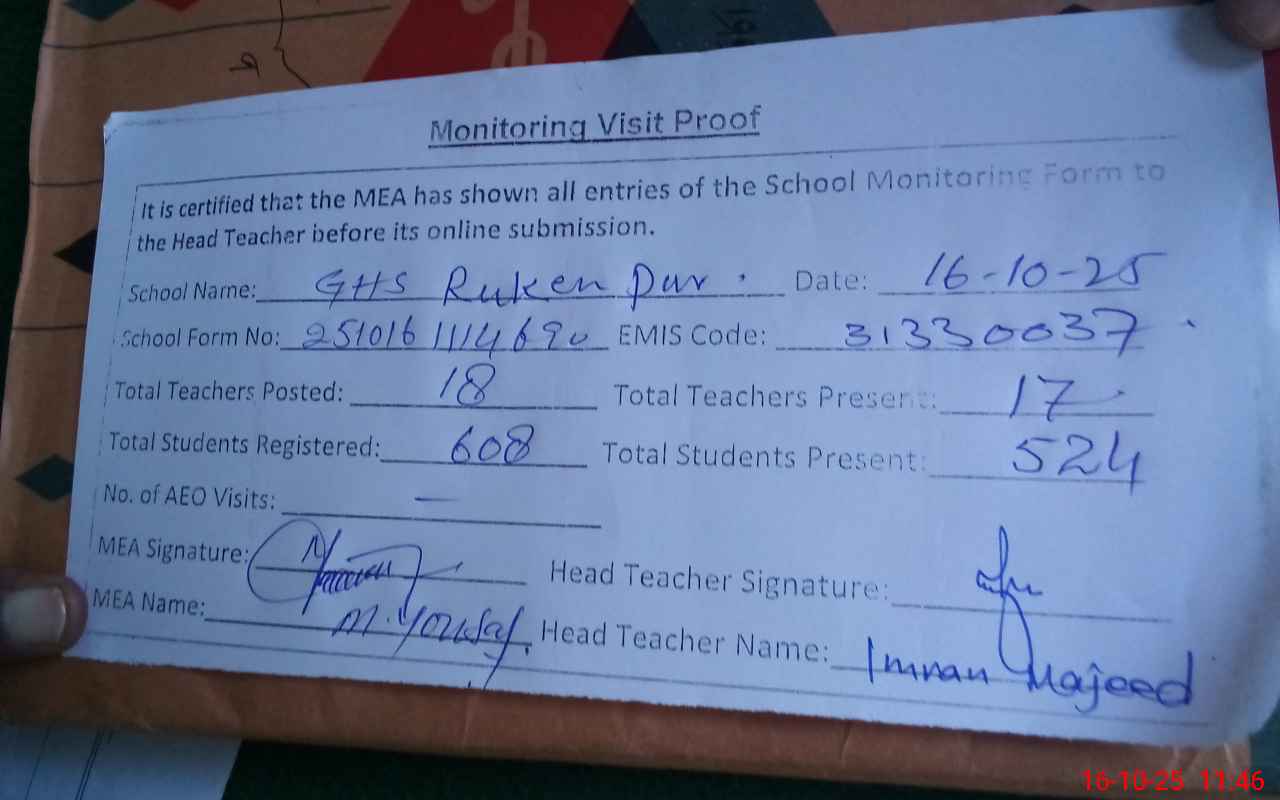 Monitoring Visit Proof
It is certified that the MEA has shown all entries of the School Monitoring Form to
the Head Teacher before its online submission.
School Name: GHS Ruken Pur . Date: 16-10-25
School Form No: 2510161114690 EMIS Code: 31330037
Total Teachers Posted: 18 Total Teachers Present: 17
Total Students Registered: 608 Total Students Present: 524
No. of AEO Visits: —
MEA Signature: Head Teacher Signature:
MEA Name: M. Yousaf Head Teacher Name: Imran Majeed
16-10-25 11:46